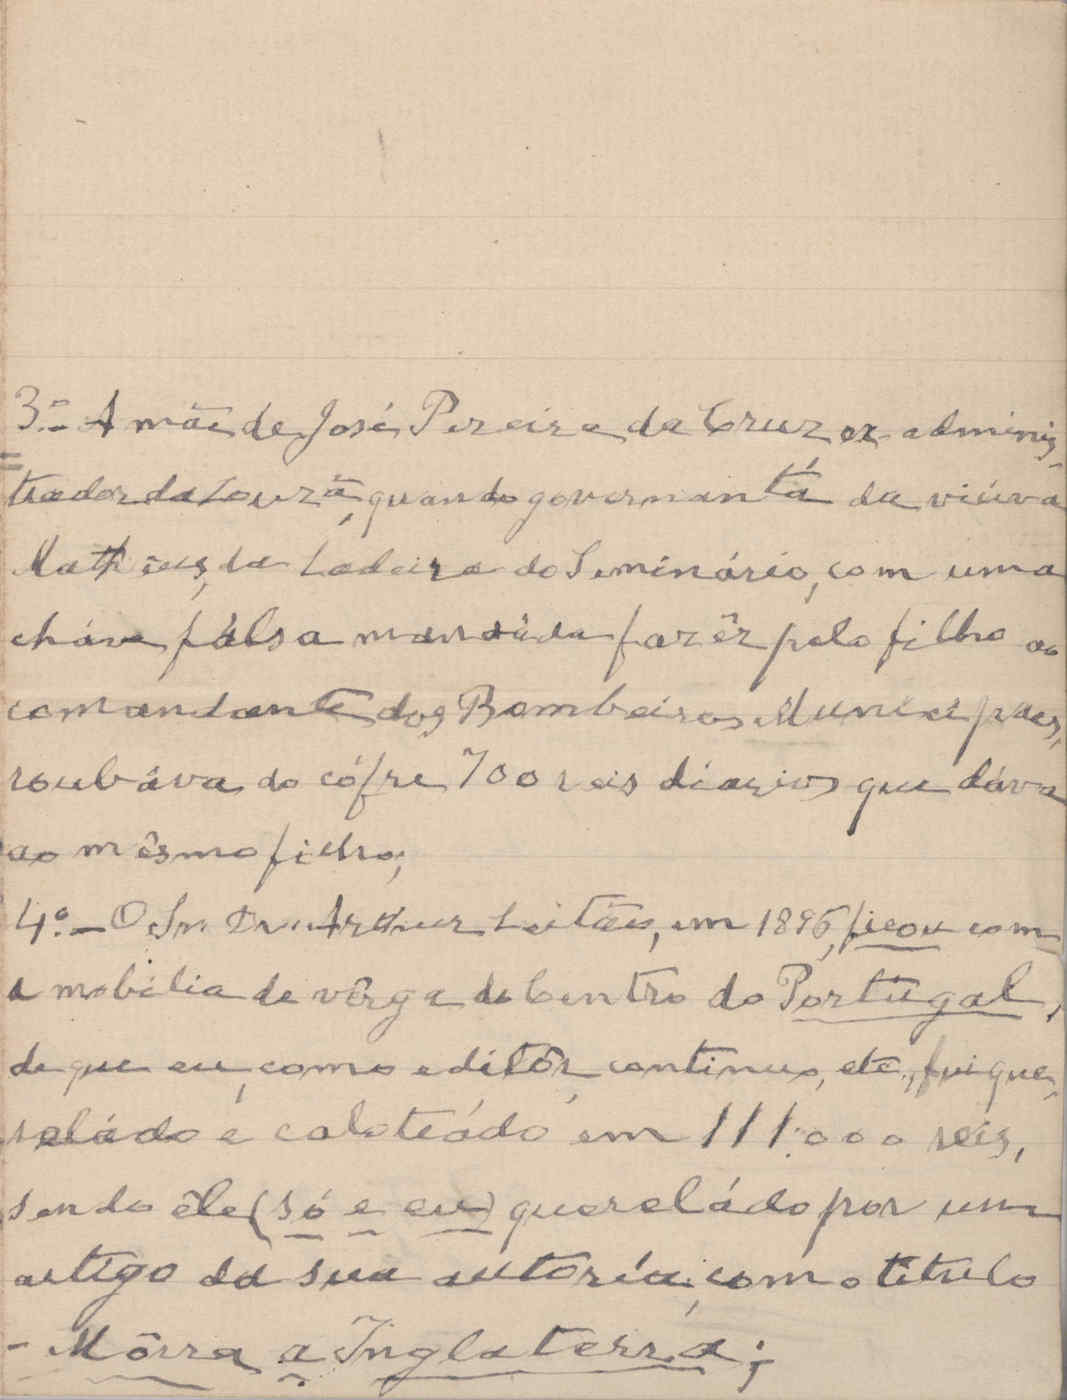 3.º- A mãi de José Pereira da Cruz ex-adminis-
trador da Louzã, quando governanta da viúva
Mathêus, da Ladeira do Seminário, com uma
cháve fálsa mandáda fazêr pelo filho ao
comandante dos Bombeiros Municipaes,
roubáva do cófre 700 reis diários que dáva
ao mêsmo filho;
4.º- O Snr. Dr. Arthur Leitão, em 1896, ficou com
a mobília de vêrga do Centro do Portugal,
de que eu, como editôr, continuo, etc., fui que-
reládo e caloteádo em 111:000 reis,
sendo êle (só e eu) quereládo por um
artigo da sua autoría, com o título
- Môrra a Inglaterra;